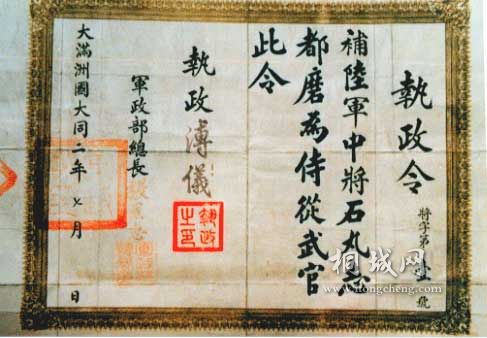 執政令
將字第壹號
補陸軍中將石丸志
都磨為侍從武官
此令
執政溥儀
執政之印
軍政部總長
大滿洲國大同二年七月 日
桐城网
itongcheng.com